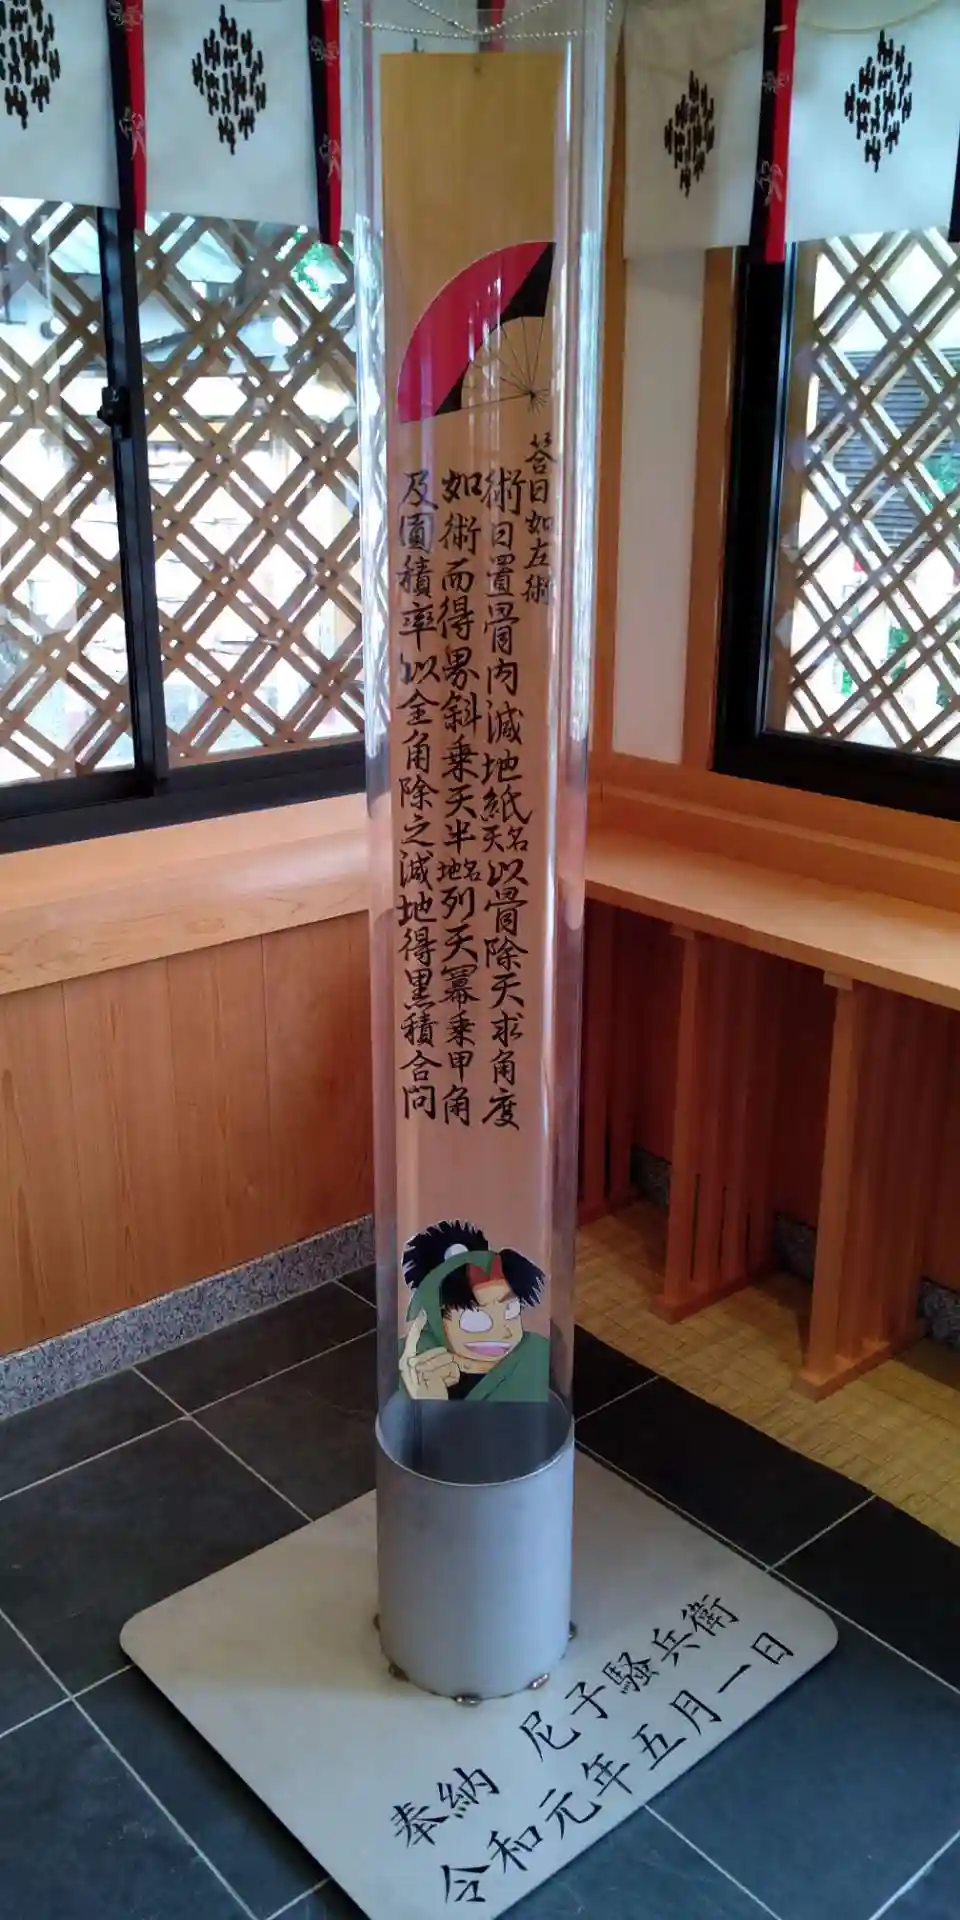 答曰如左術
術曰置骨内減地紙天名以骨除天求角度
如術而得界斜乗天半地名列天冪乗甲角
及圓積率以全角除之減地得黒積合問
奉納 尼子騒兵衛
令和元年五月一日